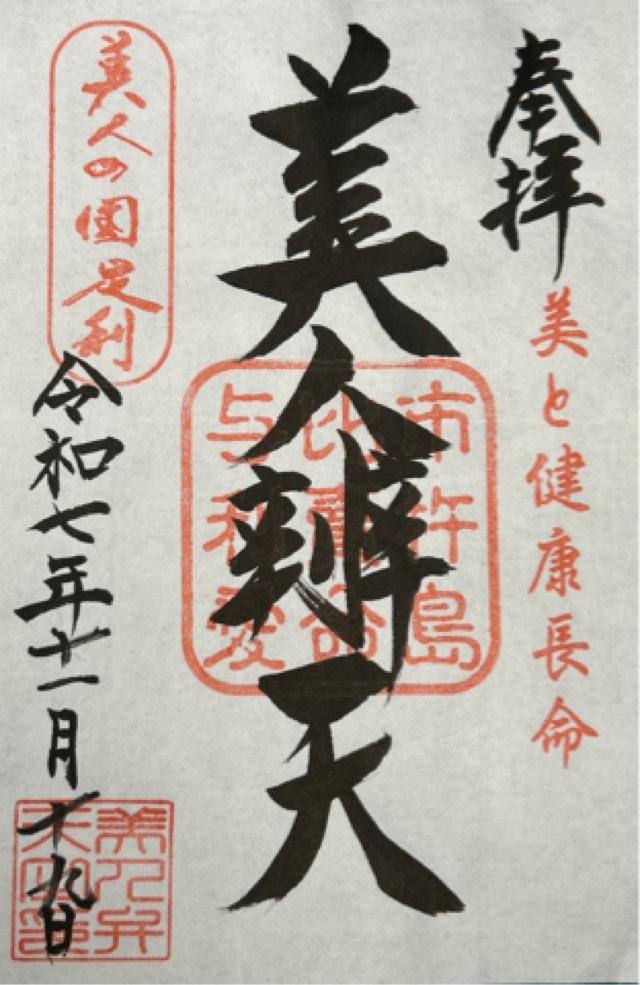 奉拝
美と健康長命
美人辨天
市杵島
比賣命
与利愛
美人の国足利
令和七年十一月十九日
美人弁
天